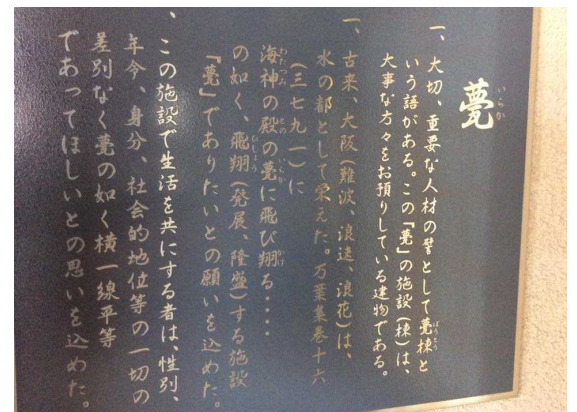 甍
一、大切、重要な人材の譬として甍棟と
いう語がある。この『甍』の施設(棟)は、
大事な方々をお預りしている建物である。
一、古来、大阪(難波、浪速、浪花)は、
水の都として栄えた。万葉集巻十六
(三七九一)に
海神の殿の甍に飛び翔る・・・・
の如く、飛翔(発展、隆盛)する施設
『甍』でありたいとの願いを込めた。
、この施設で生活を共にする者は、性別、
年令、身分、社会的地位等の一切の
差別なく甍の如く横一線平等
であってほしいとの思いを込めた。